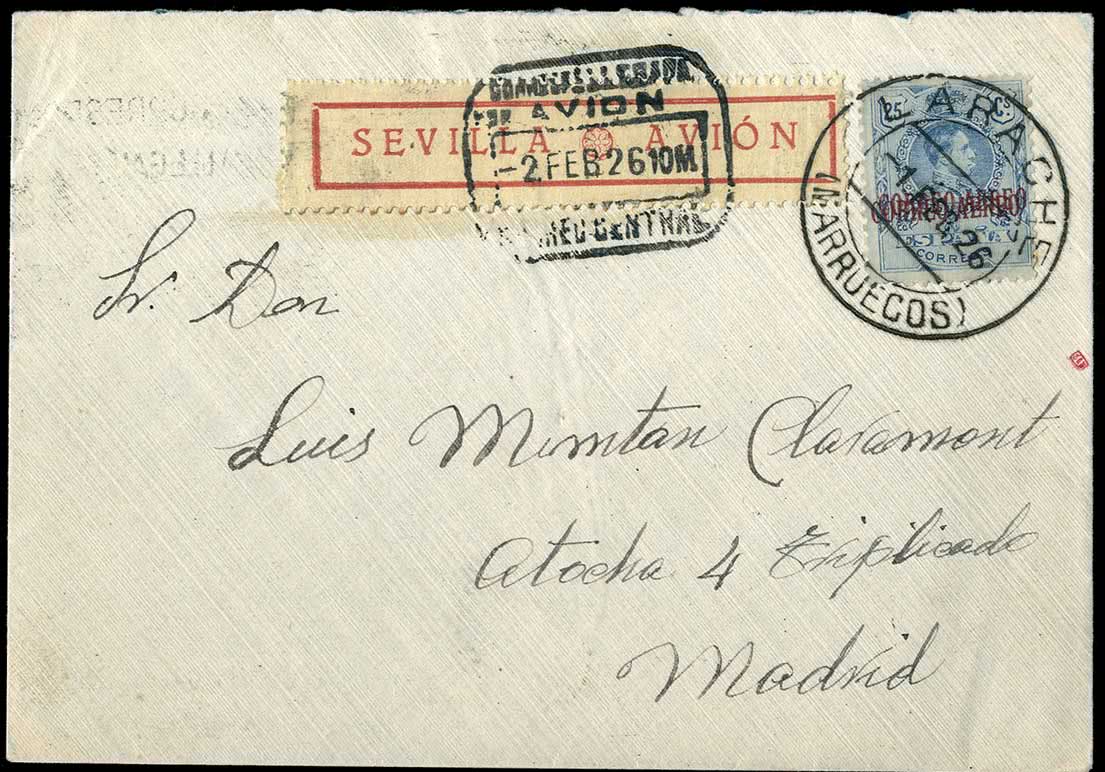 CORRESPONDENCIA LLEGADA
POR AVION
SEVILLA AVIÓN
-2 FEB 26 10M
CORREO CENTRAL
25 Cs
LARACHE
CORREO AEREO
CORREOS
26
(MARRUECOS)
Sr. Don
Luis Claramont
Atocha 4 Triplicado
Madrid